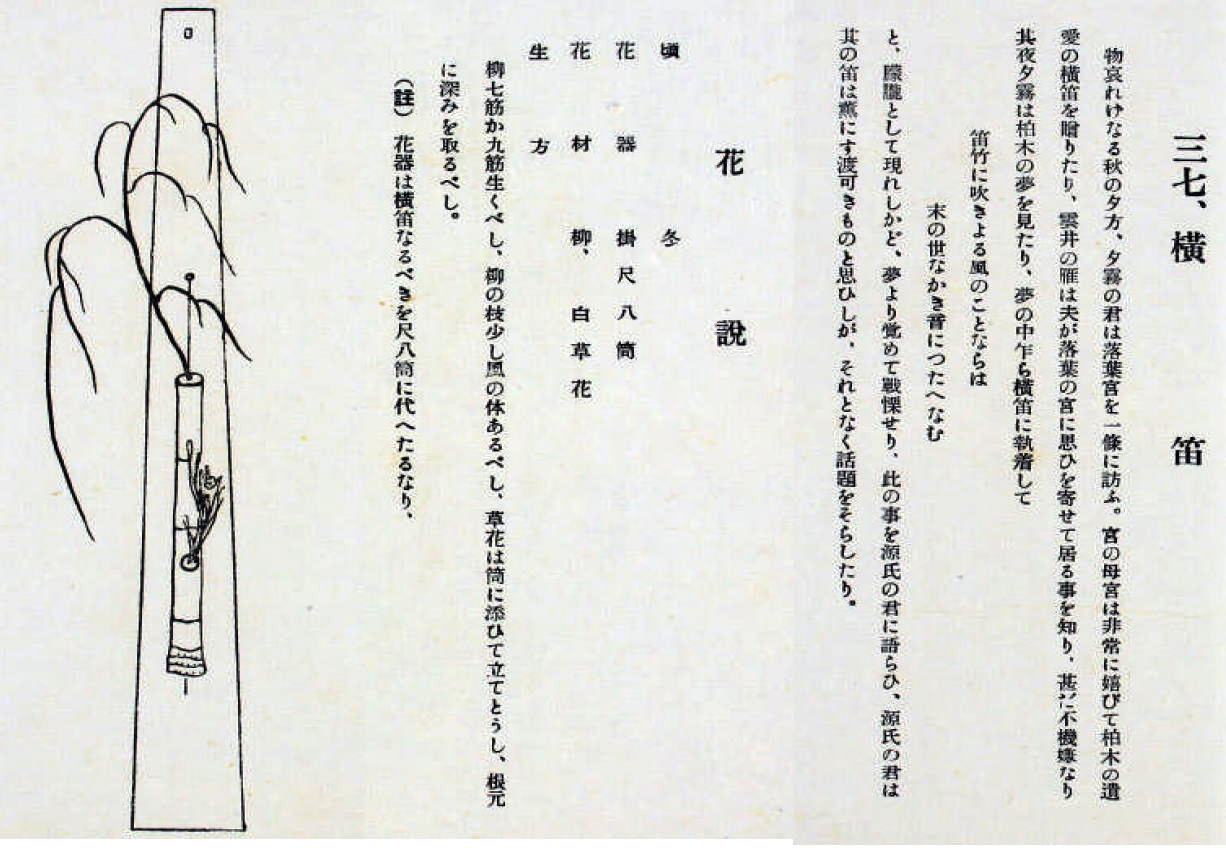 三七、横笛
物哀れけなる秋の夕方、夕霧の君は落葉宮を一條に訪ふ。宮の母宮は非常に嬉びて柏木の遺
愛の横笛を贈りたり、雲井の雁は夫が落葉の宮に思ひを寄せて居る事を知り、甚だ不機嫌なり
其夜夕霧は柏木の夢を見たり、夢の中乍ら横笛に執着して
笛竹に吹きよる風のことならは
末の世なかき音につたへなむ
と、朦朧として現れしかど、夢より覚めて戦慄せり、此の事を源氏の君に語らひ、源氏の君は
其の笛は薫にす渡可きものと思ひしが、それとなく話題をそらしたり。
花說
頃 冬
花器 掛尺八筒
花材 柳、白草花
生方
柳七筋か九筋生くべし、柳の枝少し風の体あるべし、草花は筒に添ひて立てとうし、根元
に深みを取るべし。
(註) 花器は横笛なるべきを尺八筒に代へたるなり、